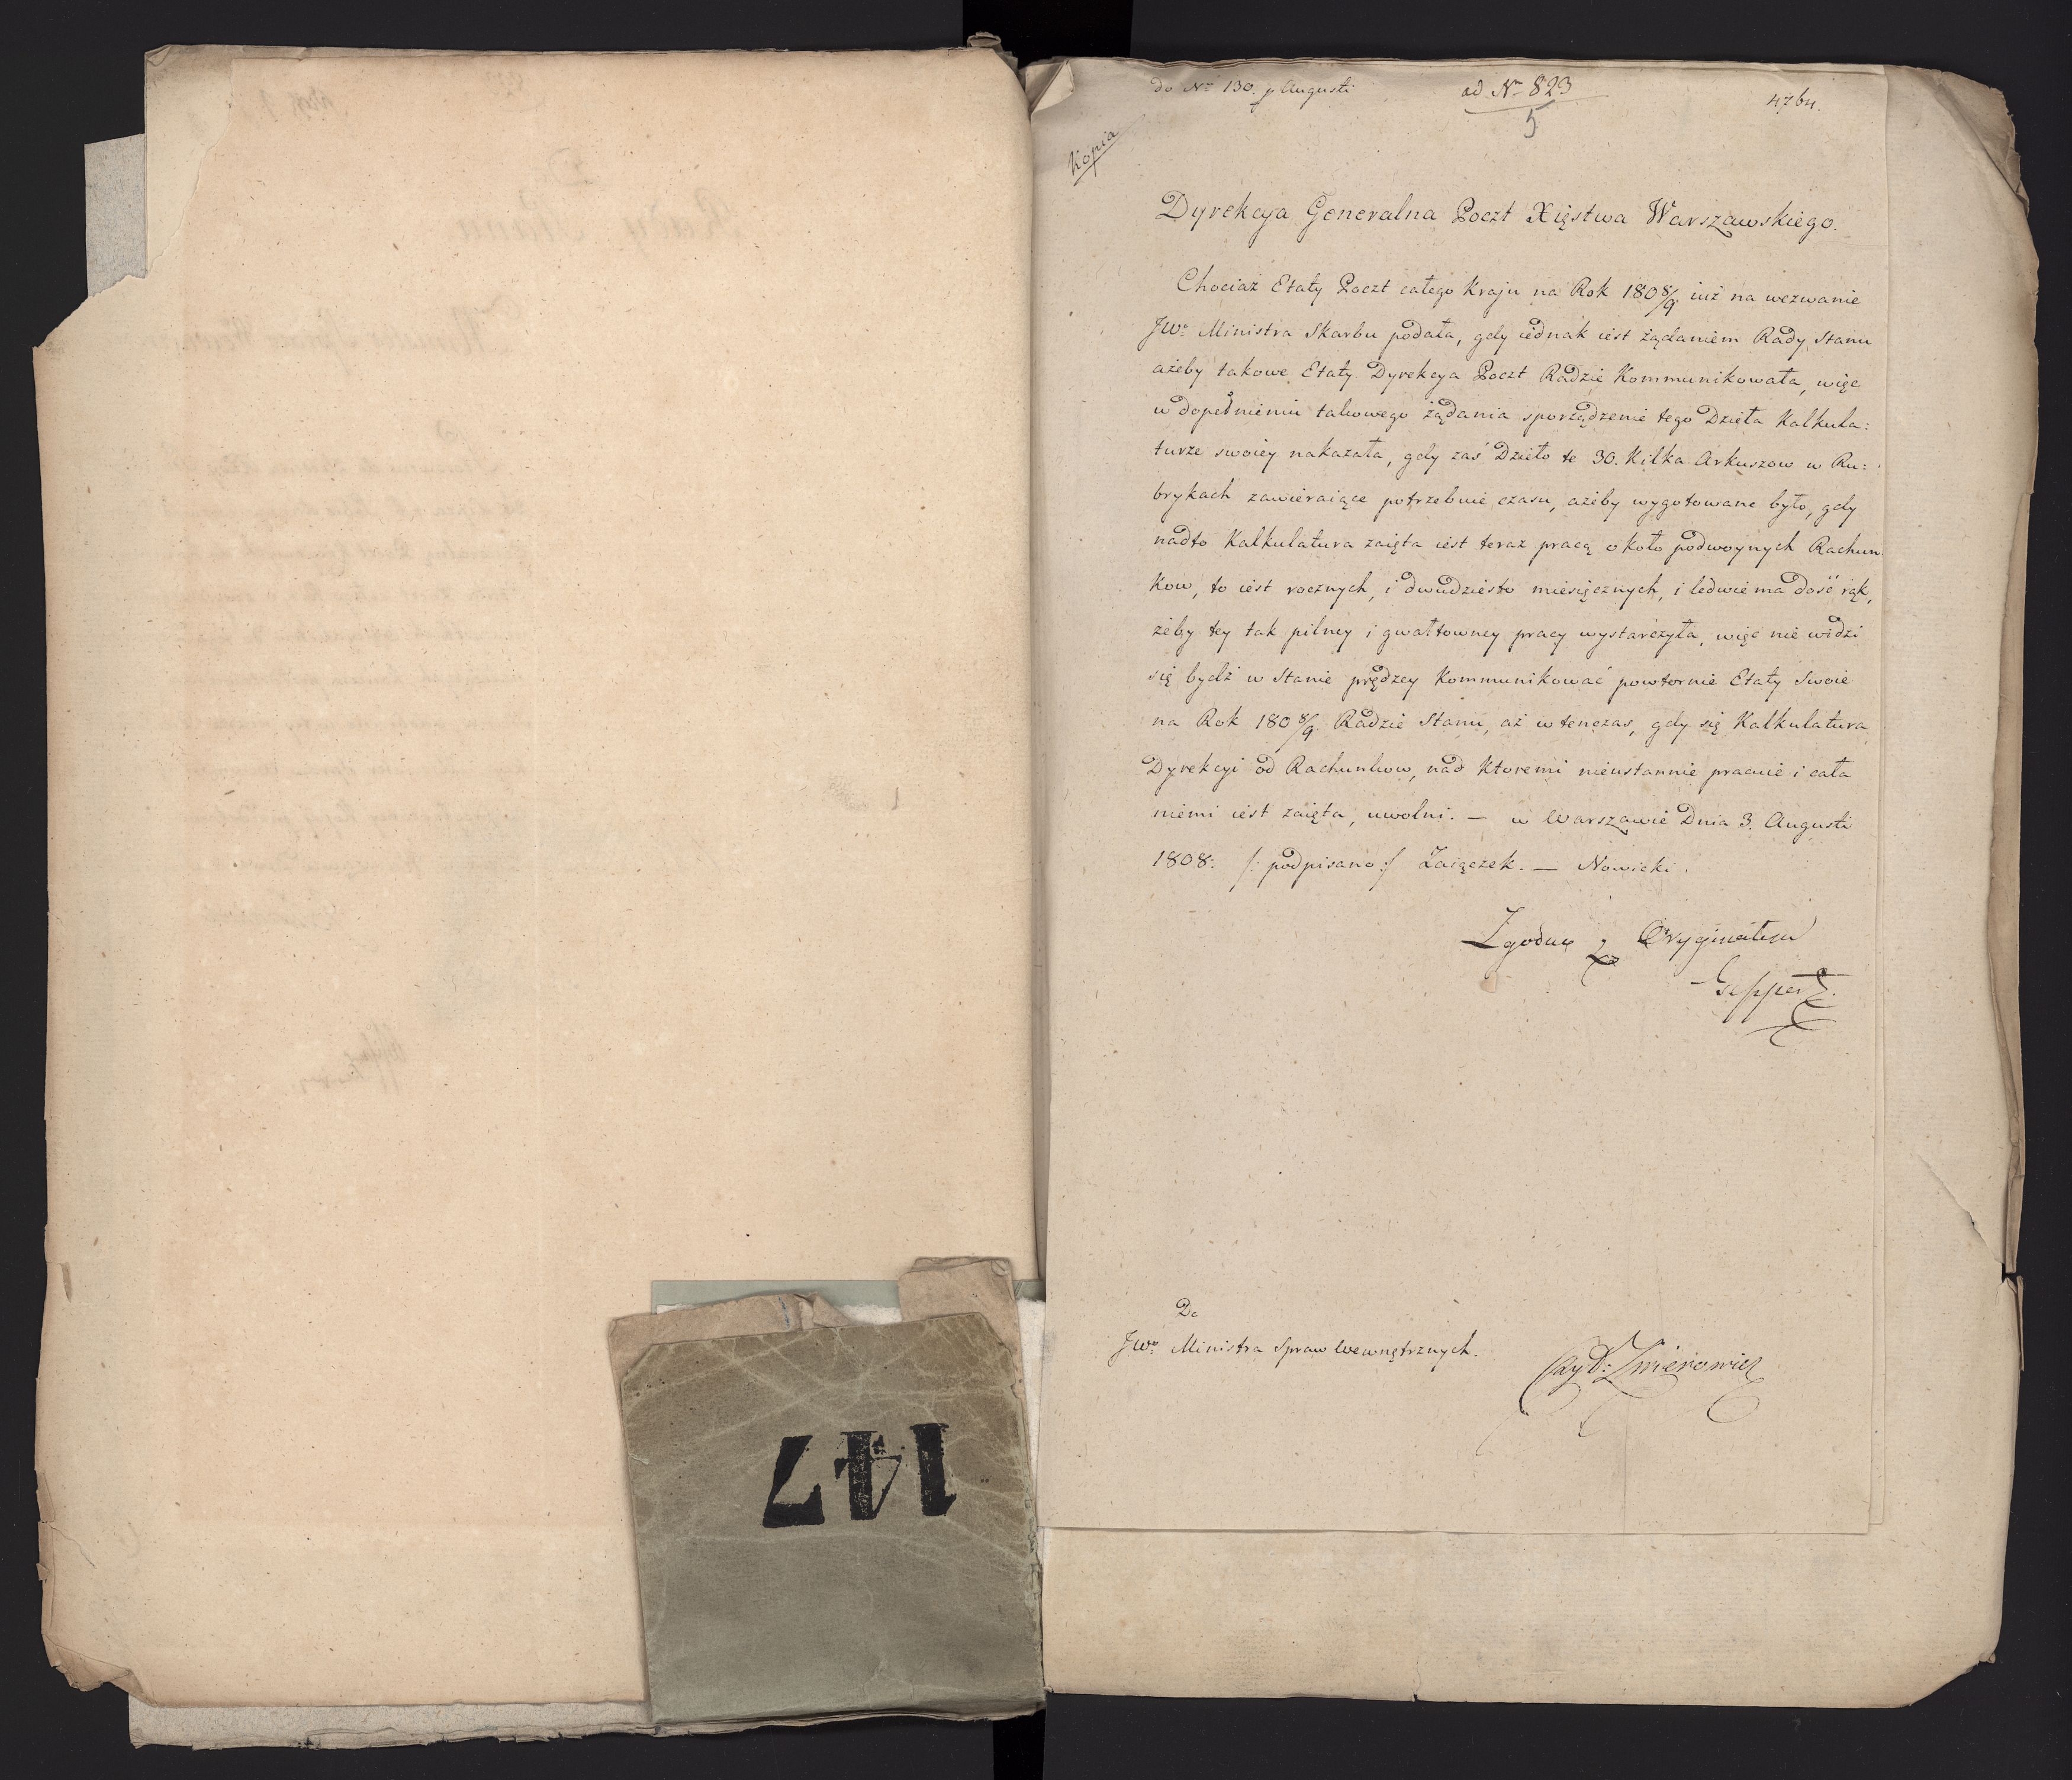 do Nro 130. p Augusti
ad Nrm 823
5
47bn.
Kopia
Dyrekcya Generalna Poczt Xięstwa Warszawskiego.
Chociaż Etaty Poczt całego Kraju na Rok 1808/9 iuż na wezwanie
JWo Ministra Skarbu podała, gdy iednak iest żądaniem Rady Stanu
ażeby takowe Etaty Dyrekcya Poczt Radzie Kommunikowała, więc
w dopełnieniu takowego żądania sporządzenie tego Dzieła Kalkula:
turze swoiey nakazała, gdy zaś Dzieło te 30. Kilka Arkuszow w Ru:
brykach zawieraiące potrzebuie czasu, ażeby wygotowane było, gdy
nadto Kalkulatura zaięta iest teraz pracą około podwoynych Rachun
Kow, to iest rocznych, i dwudziesto miesięcznych, i ledwie ma dość rąk,
żeby tey tak pilney i gwałtowney pracy wystarczyła, więc nie widzi
się bydź w Stanie prędzey Kommunikować powtornie Etaty Swoie
na Rok 1808/9. Radzie Stanu, aż w tenczas, gdy się Kalkulatura
Dyrekcyi od Rachunkow, nad Ktoremi nieustannie pracuie i cała
niemi iest zaięta, uwolni. — w Warszawie Dnia 3. Augusti
1808. /: podpisano :/ Zaiączek. — Nowicki.
Zgodno z Oryginałem
Geppert.
Do
JWo Ministra Spraw Wewnętrznych.
147